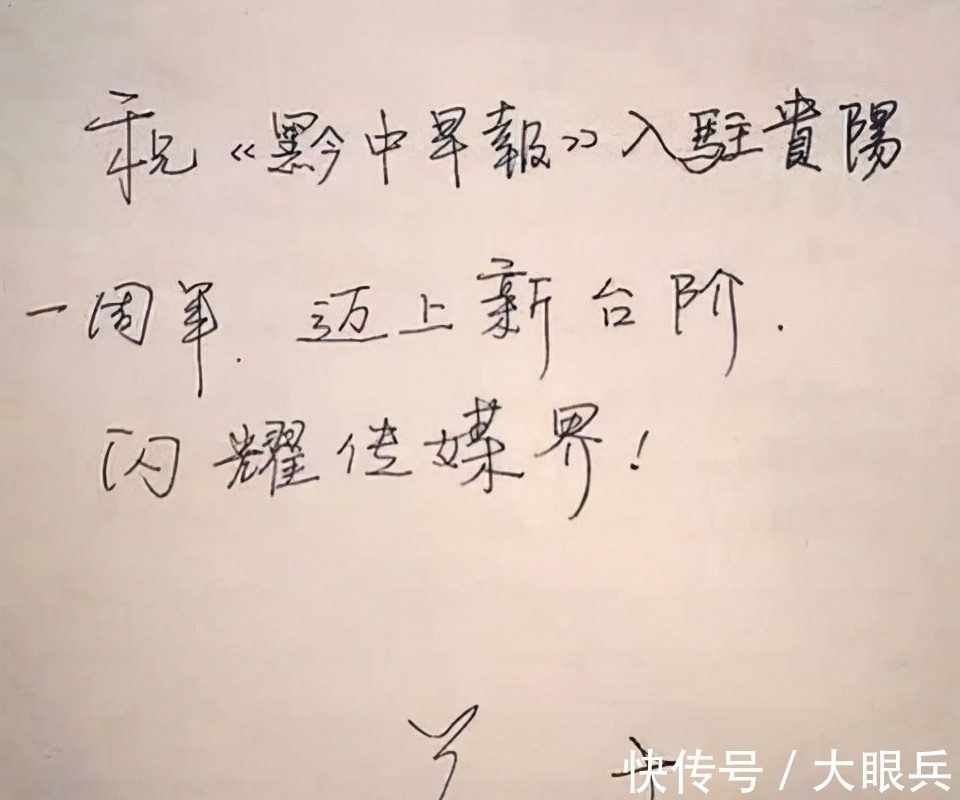 祝《黔中早报》入駐貴陽
一周年.迈上新台阶.
闪耀传媒界!
快传号/大眼兵